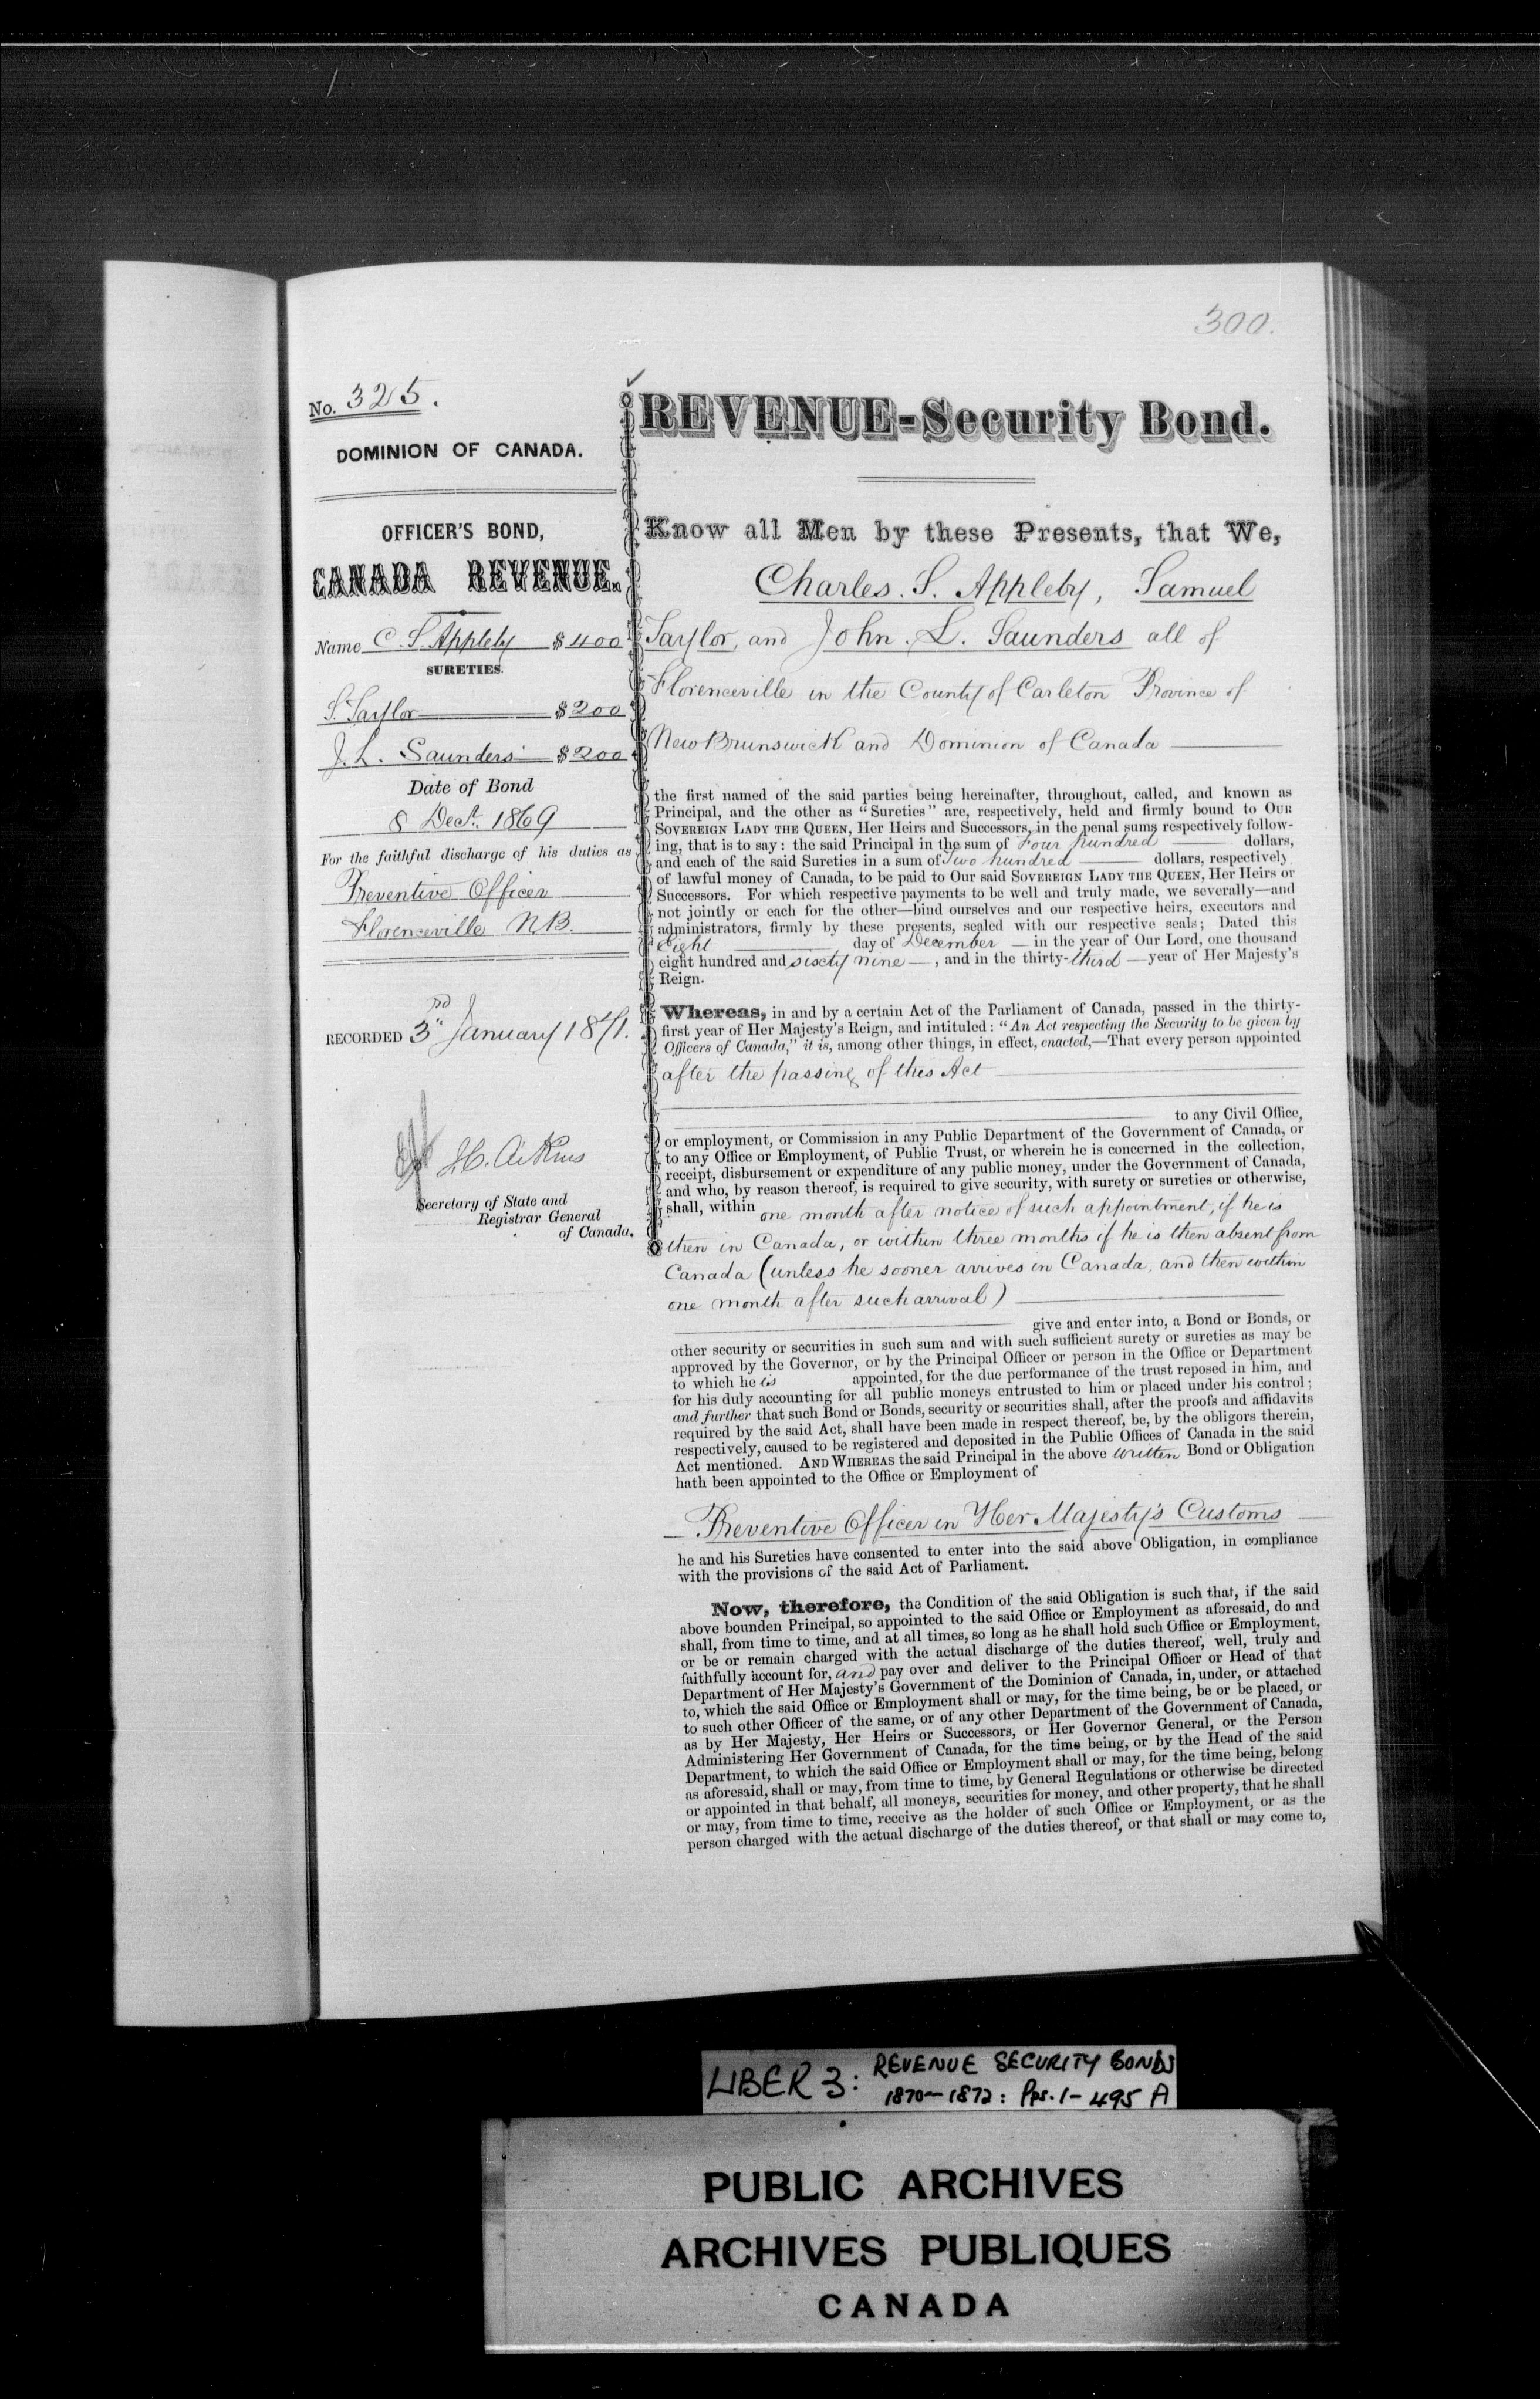 300.
No. 325.
DOMINION OF CANADA.
OFFICER'S BOND,
CANADA REVENUE.
Name C. S. Appleby $400
SURETIES.
S. Taylor $200
J. L. Saunders $200
Date of Bond
8 Dec. 1869
For the faithful discharge of his duties as
Preventive Officer
Florenceville N.B.
RECORDED 3rd January 1871.
Secretary of State and
Registrar General
of Canada.
REVENUE-Security Bond.
Know all Men by these Presents, that We,
Charles. S. Appleby, Samuel
Taylor, and John. L. Saunders all of
Florenceville in the County of Carleton Province of
New Brunswick and Dominion of Canada
the first named of the said parties being hereinafter, throughout, called, and known as
Principal, and the other as "Sureties" are, respectively, held and firmly bound to OUR
SOVEREIGN LADY THE QUEEN, Her Heirs and Successors, in the penal sums respectively follow-
ing, that is to say: the said Principal in the sum of Four hundred dollars,
and each of the said Sureties in a sum of Two hundred dollars, respectively
of lawful money of Canada, to be paid to Our said SOVEREIGN LADY THE QUEEN, Her Heirs or
Successors. For which respective payments to be well and truly made, we severally—and
not jointly or each for the other—bind ourselves and our respective heirs, executors and
administrators, firmly by these presents, sealed with our respective seals; Dated this
Eight day of December in the year of Our Lord, one thousand
eight hundred and sixty nine , and in the thirty-third year of Her Majesty's
Reign.
Whereas, in and by a certain Act of the Parliament of Canada, passed in the thirty-
first year of Her Majesty's Reign, and intituled: "An Act respecting the Security to be given by
Officers of Canada," it is, among other things, in effect, enacted,—That every person appointed
after the passing of this Act
to any Civil Office,
or employment, or Commission in any Public Department of the Government of Canada, or
to any Office or Employment, of Public Trust, or wherein he is concerned in the collection,
receipt, disbursement or expenditure of any public money, under the Government of Canada,
and who, by reason thereof, is required to give security, with surety or sureties or otherwise,
shall, within one month after notice of such appointment, if he is
then in Canada, or within three months if he is then absent from
Canada (unless he sooner arrives in Canada, and then within
one month after such arrival)
give and enter into, a Bond or Bonds, or
other security or securities in such sum and with such sufficient surety or sureties as may be
approved by the Governor, or by the Principal Officer or person in the Office or Department
to which he is appointed, for the due performance of the trust reposed in him, and
for his duly accounting for all public moneys entrusted to him or placed under his control;
and further that such Bond or Bonds, security or securities shall, after the proofs and affidavits
required by the said Act, shall have been made in respect thereof, be, by the obligors therein,
respectively, caused to be registered and deposited in the Public Offices of Canada in the said
Act mentioned. AND WHEREAS the said Principal in the above written Bond or Obligation
hath been appointed to the Office or Employment of
Preventive Officer in Her Majesty's Customs
he and his Sureties have consented to enter into the said above Obligation, in compliance
with the provisions of the said Act of Parliament.
Now, therefore, the Condition of the said Obligation is such that, if the said
above bounden Principal, so appointed to the said Office or Employment as aforesaid, do and
shall, from time to time, and at all times, so long as he shall hold such Office or Employment,
or be or remain charged with the actual discharge of the duties thereof, well, truly and
faithfully account for, and pay over and deliver to the Principal Officer or Head of that
Department of Her Majesty's Government of the Dominion of Canada, in, under, or attached
to, which the said Office or Employment shall or may, for the time being, be or be placed, or
to such other Officer of the same, or of any other Department of the Government of Canada,
as by Her Majesty, Her Heirs or Successors, or Her Governor General, or the Person
Administering Her Government of Canada, for the time being, or by the Head of the said
Department, to which the said Office or Employment shall or may, for the time being, belong
as aforesaid, shall or may, from time to time, by General Regulations or otherwise be directed
or appointed in that behalf, all moneys, securities for money, and other property, that he shall
or may, from time to time, receive as the holder of such Office or Employment, or as the
person charged with the actual discharge of the duties thereof, or that shall or may come to,
LIBER 3: REVENUE SECURITY BONDS
1870-1872: Pps. 1-495 A
PUBLIC ARCHIVES
ARCHIVES PUBLIQUES
CANADA